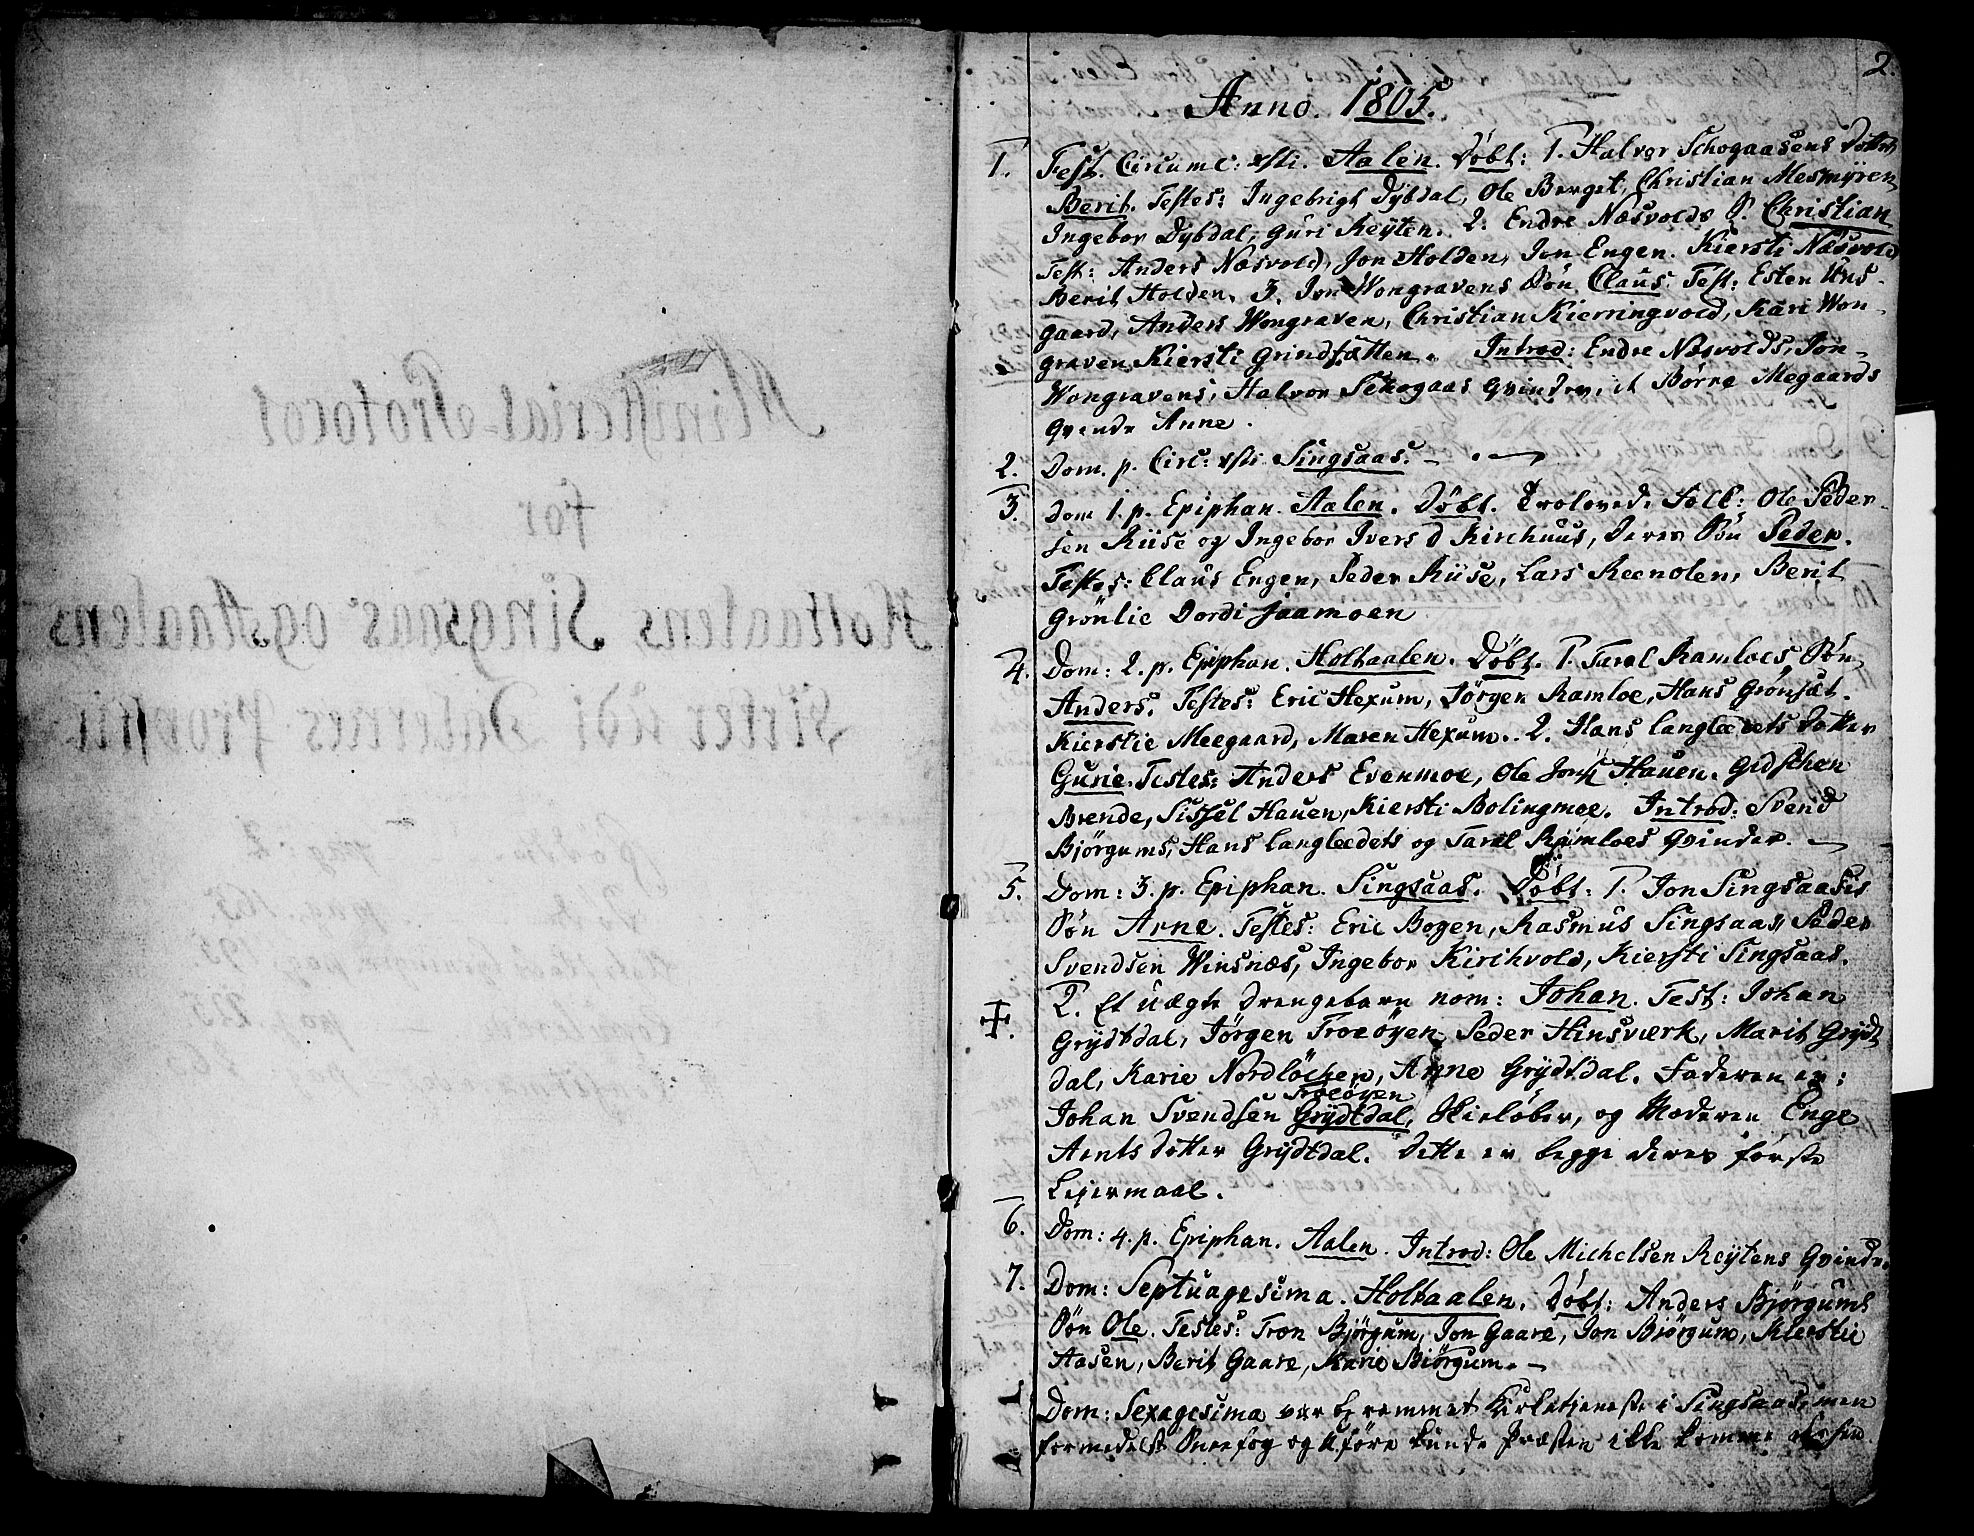 2.
Anno. 1805.
1. Fest. Circumc: xsti. Aalen. Døbt: 1. Halvor Schogaasens Datter
Berit. Testes: Ingebrigt Dybdal, Ole Berget, Christian Mesmyren
Ingebor Dybdal, Guri Reyten. 2. Endre Næsvolds S. Christian
Test: Anders Næsvold, Jon Holden, Jon Engen. Kiersti Næsvold
Berit Holden. 3. Jon Wongravens Søn Claus. Test: Esten Uns-
gaard, Anders Wongraven, Christian Kierringvold, Kari Won-
graven Kiersti Grindsætten. Introd: Endre Næsvolds, Jon
Wongravens, Halvor Schogaas Qvinder, it Børre Megaards
Qvinde Anne.
2. Dom. p. Circ: xsti Singsaas.
3. Dom 1. p. Epiphan. Aalen. Døbt. Trolovede Folk: Ole Peder-
sen Riise og Ingebor Ivers d Kirchuus, deres Søn Peder.
Testes: Claus Engen, Peder Riise, Lars Reenolen, Berit
Grönlie Dordi Jaamoen
4. Dom: 2. p. Epiphan. Holtaalen. Døbt. 1. Taral Ramloes Søn
Anders. Testes: Eric Hexum, Jörgen Ramloe, Hans Grönset.
Kierstie Meegaard, Maren Hexum. 2. Hans Langleedets Datter
Gurie. Testes: Anders Evenmoe, Ole Hauen.
Brende, Sissel Hauen, Kiersti Bolingmoe. Introd: Svend
Björgums, Hans Langleedets og Taral Ramloes Qvinder.
5. Dom: 3. p. Epiphan. Singsaas. Døbt: 1. Jon Singsaases
Søn Arne. Testes: Eric Bogen, Rasmus Singsaas, Peder
Svendsen Winsnæs, Ingebor Kirchvold, Kiersti Singsaas.
2. Et uægte Drengebarn nom: Johan. Test: Johan
Grydtdal, Jörgen Troeöyen Peder Hinsværk, Marit Grydt
dal, Karie Nordlöchen, Anne Grydtdal. Faderen er:
Troeöyen
Johan Svendsen Grydtdal, Skielöber, og Moderen Enge
Arnts datter Grydtdal. Dette er begge deres förste
Leiermaal.
6. Dom: 4. p. Epiphan. Aalen. Introd: Ole Michelsen Reytens Qvinde.
7. Dom: Septuagesima. Holtaalen. Døbt: Anders Björgums
Søn Ole. Testes: Tron Björgum, Jon Gaare, Jon Björgum, Kierstie
Aasen, Berit Gaare, Karie Biörgum.
Dom: Sexagesima var berammet Kirketjeneste i Singsaas, men
formedelst Sneefog og Uföre kunde Præsten ikke komme
Ministerial-Protocol
for
Holtaalens, Singsaas og Aalens
Provstie
pag: 2
pag. 165.
pag. 195
pag. 225